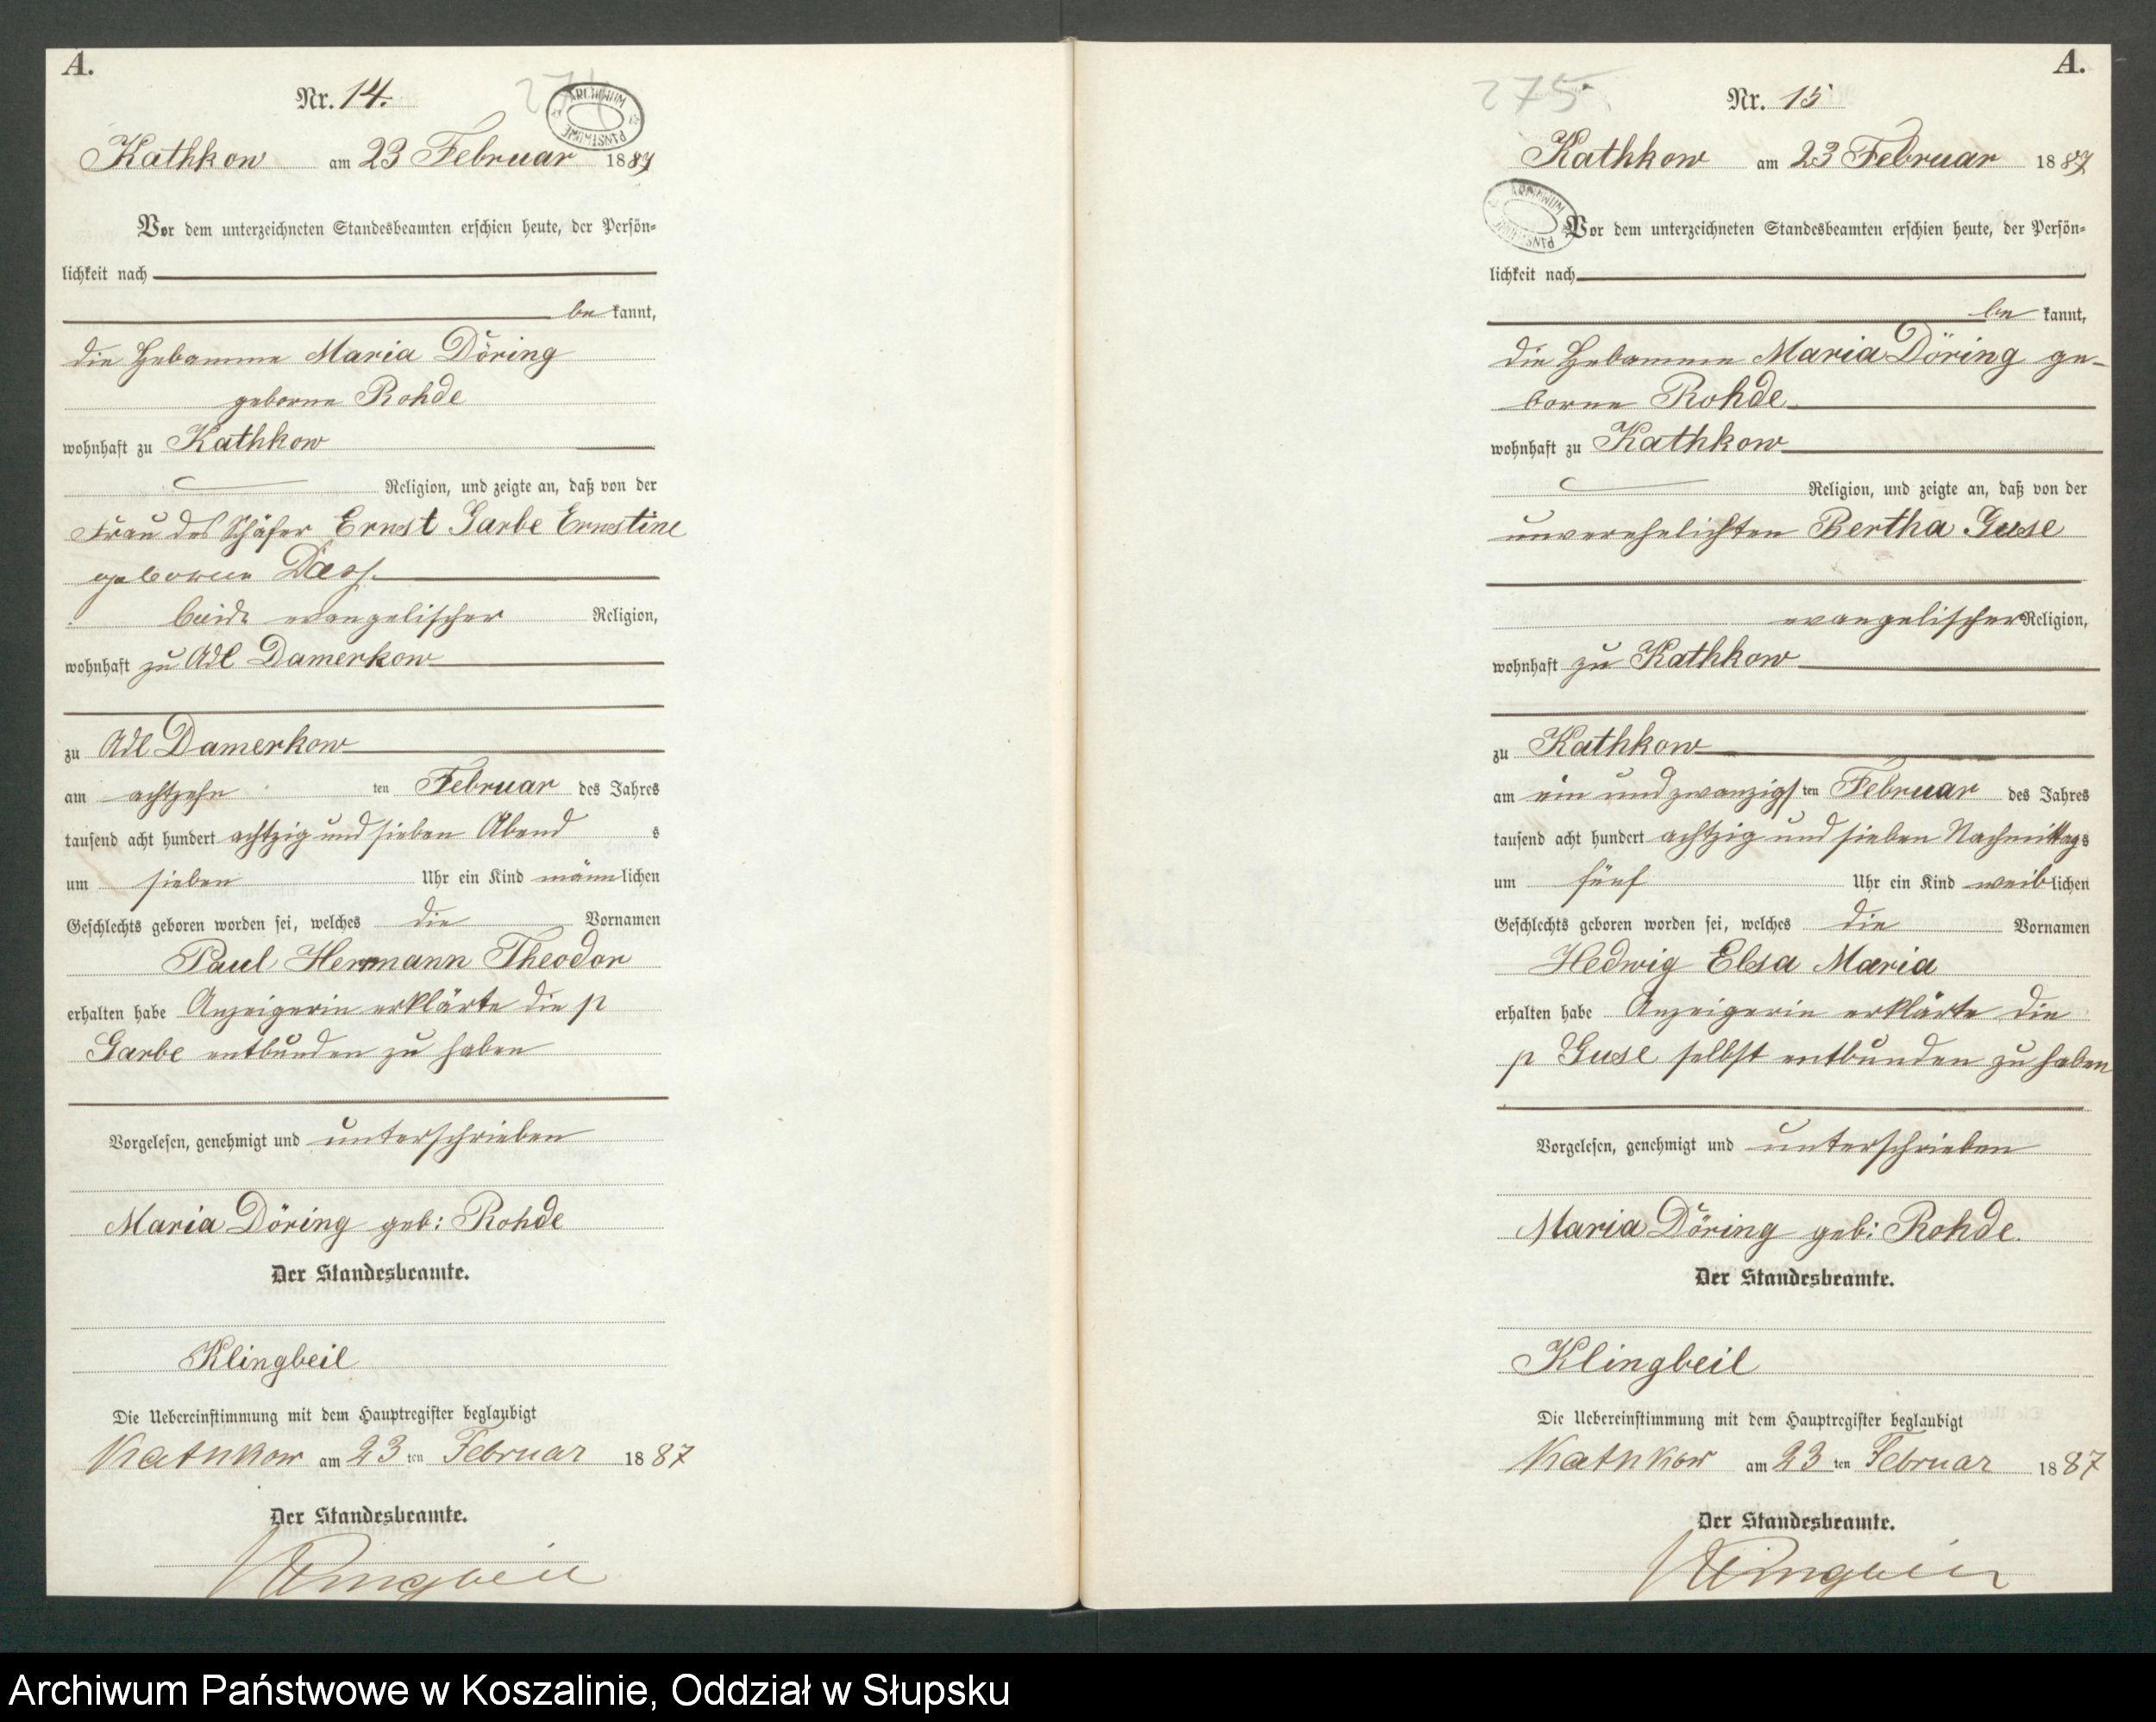 A.
Nr. 14.
274
ARCHIWUM PAŃSTWOWE
Kathkow am 23 Februar 1887
Vor dem unterzeichneten Standesbeamten erschien heute, der Persön-
lichkeit nach
be kannt,
die Hebamme Maria Döring
geborne Rohde
wohnhaft zu Kathkow
Religion, und zeigte an, daß von der
Frau des Schäfer Ernst Garbe Ernestine
geborene
beide evangelischer Religion,
wohnhaft zu Adl Damerkow
zu Adl Damerkow
am achtzehn ten Februar des Jahres
tausend acht hundert achtzig und sieben Abend s
um sieben Uhr ein Kind männlichen
Geschlechts geboren worden sei, welches die Vornamen
Paul Hermann Theodor
erhalten habe Anzeigerin erklärte die p
Garbe entbunden zu haben
Vorgelesen, genehmigt und unterschrieben
Maria Döring geb: Rohde
Der Standesbeamte.
Klingbeil
Die Uebereinstimmung mit dem Hauptregister beglaubigt
Kathkow am 23 ten Februar 1887
Der Standesbeamte.
Klingbeil
A.
275
Nr. 15
Kathkow am 23 Februar 1887
ARCHIWUM PAŃSTWOWE
Vor dem unterzeichneten Standesbeamten erschien heute, der Persön-
lichkeit nach
be kannt,
die Hebamme Maria Döring ge-
borne Rohde
wohnhaft zu Kathkow
Religion, und zeigte an, daß von der
unverehelichten Bertha Guse
evangelischer Religion,
wohnhaft zu Kathkow
zu Kathkow
am ein und zwanzigsten Februar des Jahres
tausend acht hundert achtzig und sieben Nachmittags
um fünf Uhr ein Kind weiblichen
Geschlechts geboren worden sei, welches die Vornamen
Hedwig Elsa Maria
erhalten habe Anzeigerin erklärte die
p Guse selbst entbunden zu haben
Vorgelesen, genehmigt und unterschrieben
Maria Döring geb: Rohde.
Der Standesbeamte.
Klingbeil
Die Uebereinstimmung mit dem Hauptregister beglaubigt
Kathkow am 23 ten Februar 1887
Der Standesbeamte.
Klingbeil
Archiwum Państwowe w Koszalinie, Oddział w Słupsku